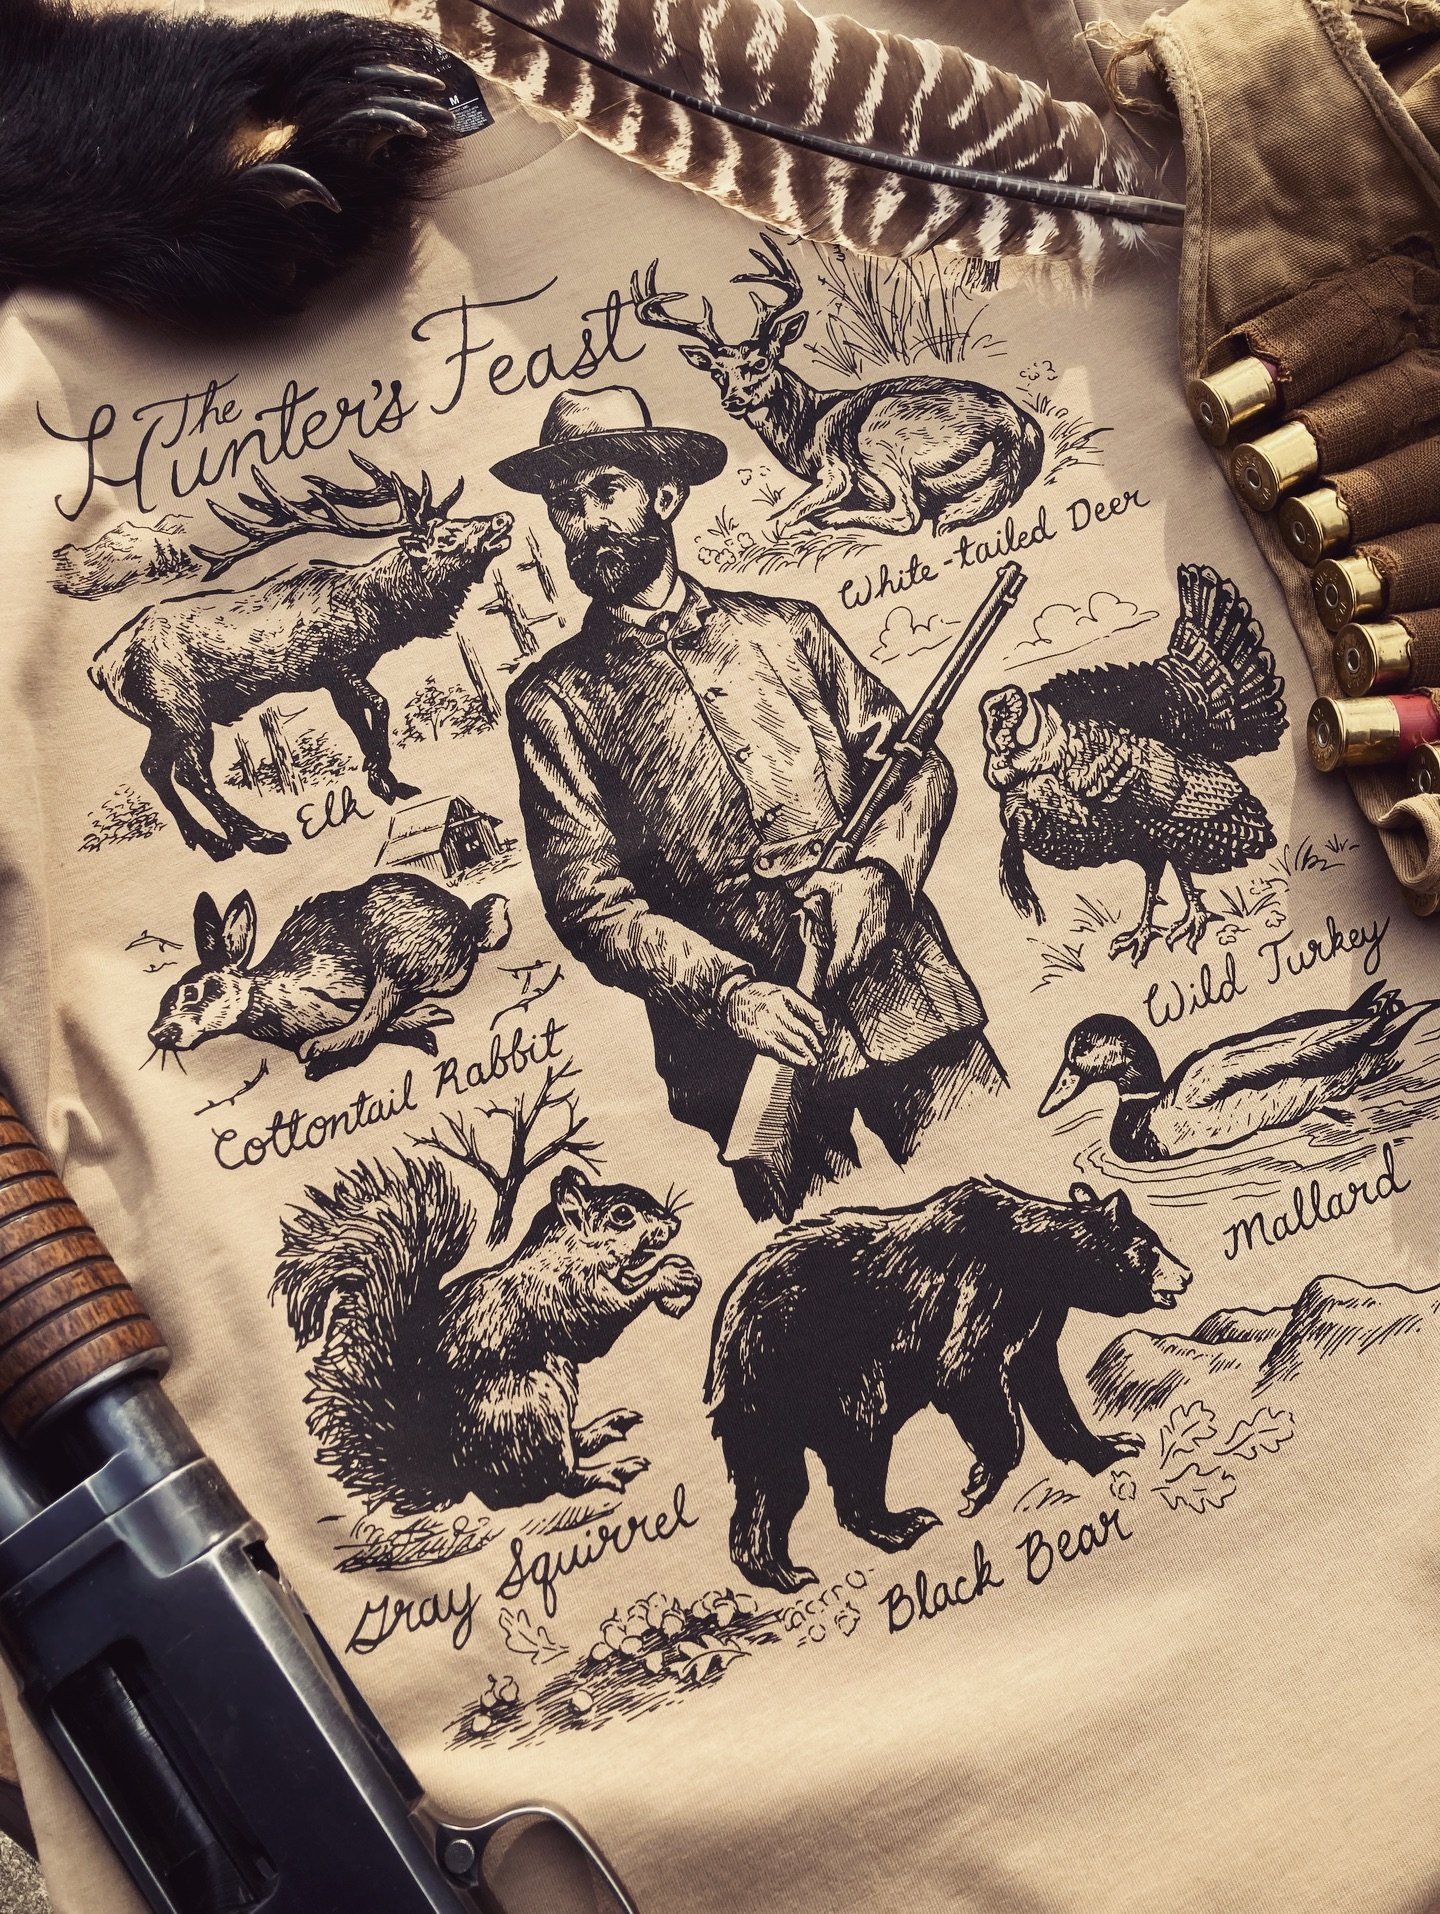 The
Hunter's Feast
White-tailed Deer
Elk
Wild Turkey
Cottontail Rabbit
Mallard
Gray Squirrel
Black Bear
M